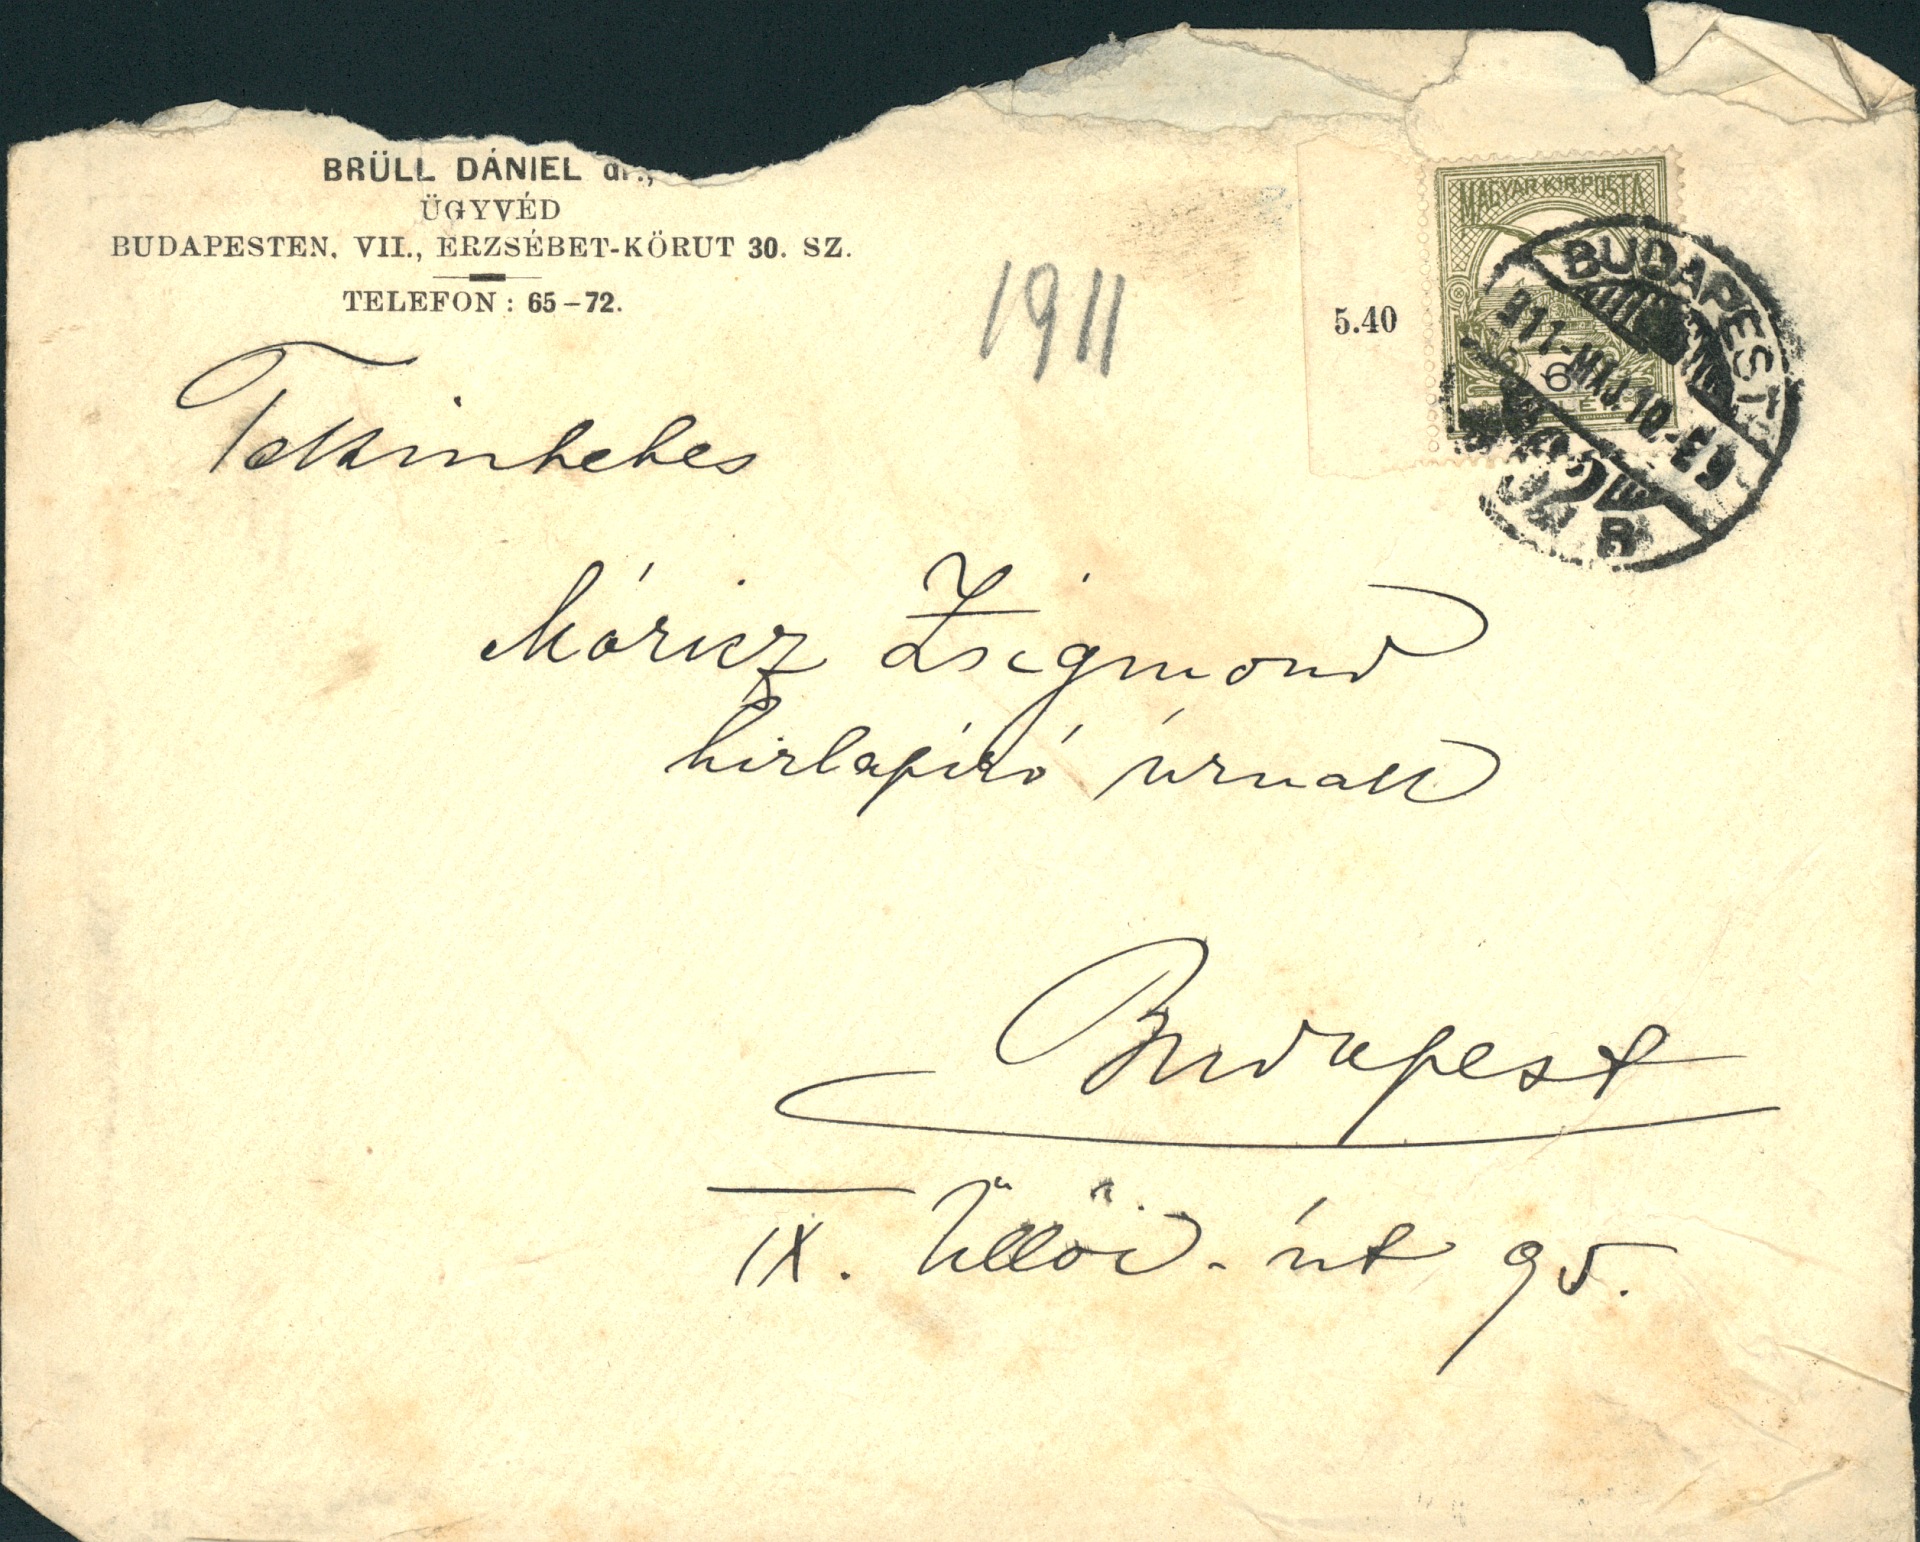 BRÜLL DÁNIEL dr.,
ÜGYVÉD
BUDAPESTEN, VII., ERZSÉBET-KÖRUT 30. SZ.
TELEFON: 65-72.
1911
5.40
MAGYAR KIR. POSTA
6
BUDAPEST
911-MÁJ.10-E9
Tekintetes
Móricz Zsigmond
hirlapíró úrnak
Budapest
IX. Üllői-út 95.